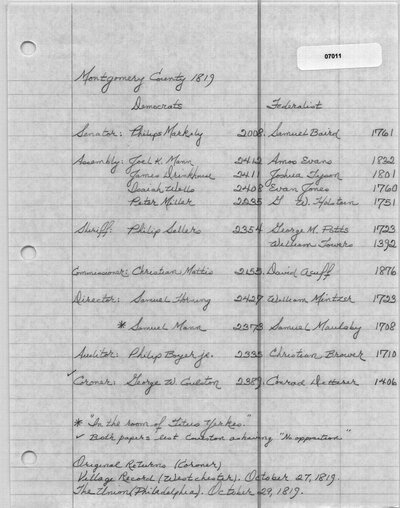 07011
Montgomery County 1819
Democrats Federalist
Senator: Philip Markely 2008 Samuel Baird 1761
Assembly: Joel K. Mann 2412 Amos Evans 1832
James Drinkhouse 2411 Joshua Tyson 1801
Isaiah Wells 2408 Evan Jones 1760
Peter Miller 2235 G W. Holstein 1751
Sheriff: Philip Sellers 2354 George M. Potts 1723
William Towers 1392
Commissioner: Christian Mattis 2155 David Acuff 1876
Director: Samuel Horning 2427 William Mintzer 1723
* Samuel Mann 2373 Samuel Maulsby 1708
Auditor: Philip Boyer jr. 2335 Christian Brower 1710
✓ Coroner: George W. Coulston 2389 Conrad 1406
* "In the room of Titus Yerkes."
✓ Both papers list Coulston as having "No opposition"
Original Returns (Coroner)
Village Record (Westchester). October 27, 1819.
The Union (Philadelphia). October 29, 1819.